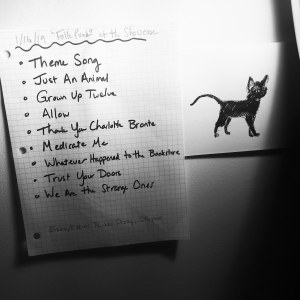 1/16/19 "Folk Punk" at the Showcase
Theme Song
Just An Animal
Grown Up Twelve
Allow
Thank You Charlotte Bronte
Medicate Me
Whatever Happened to the Bookstore
Trust Your Doors
We Are the Strange Ones